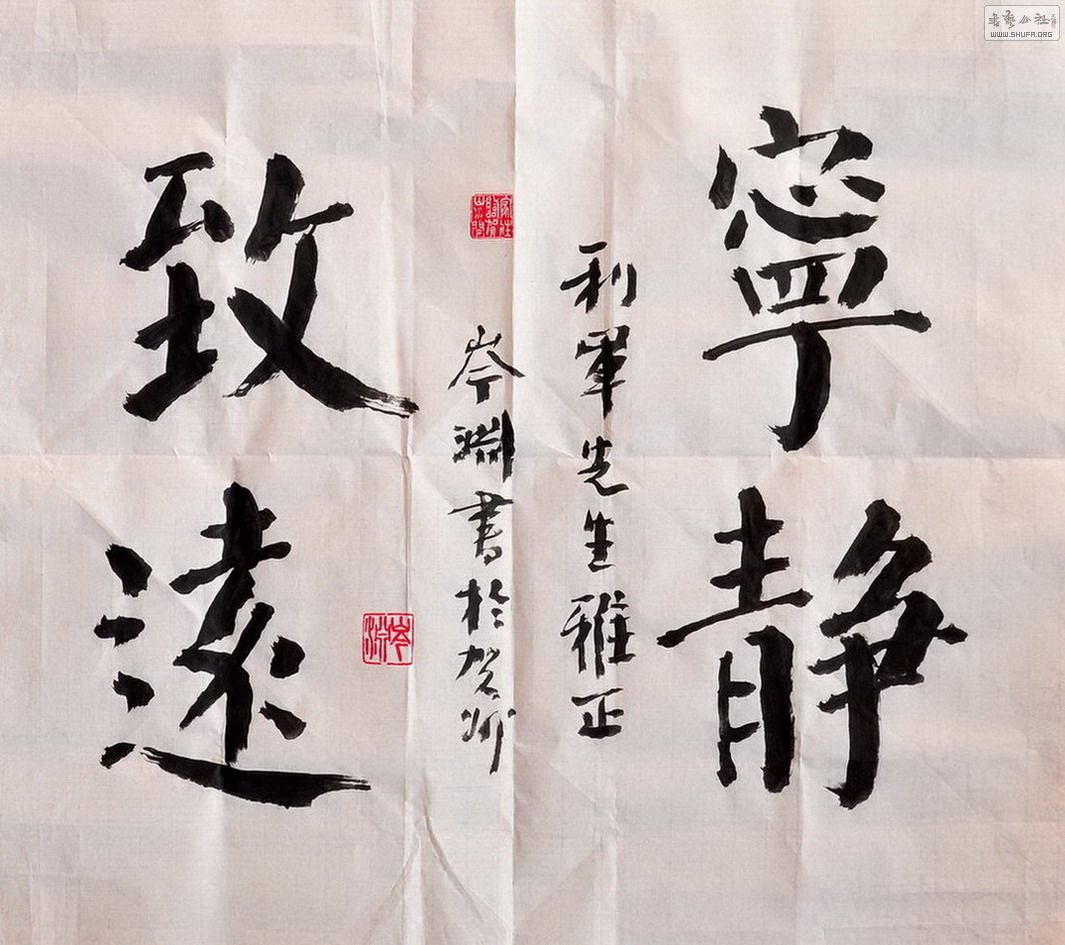 寧靜
利軍先生雅正
岑淵書於贺州
致遠
書藝公社
WWW.SHUFA.ORG